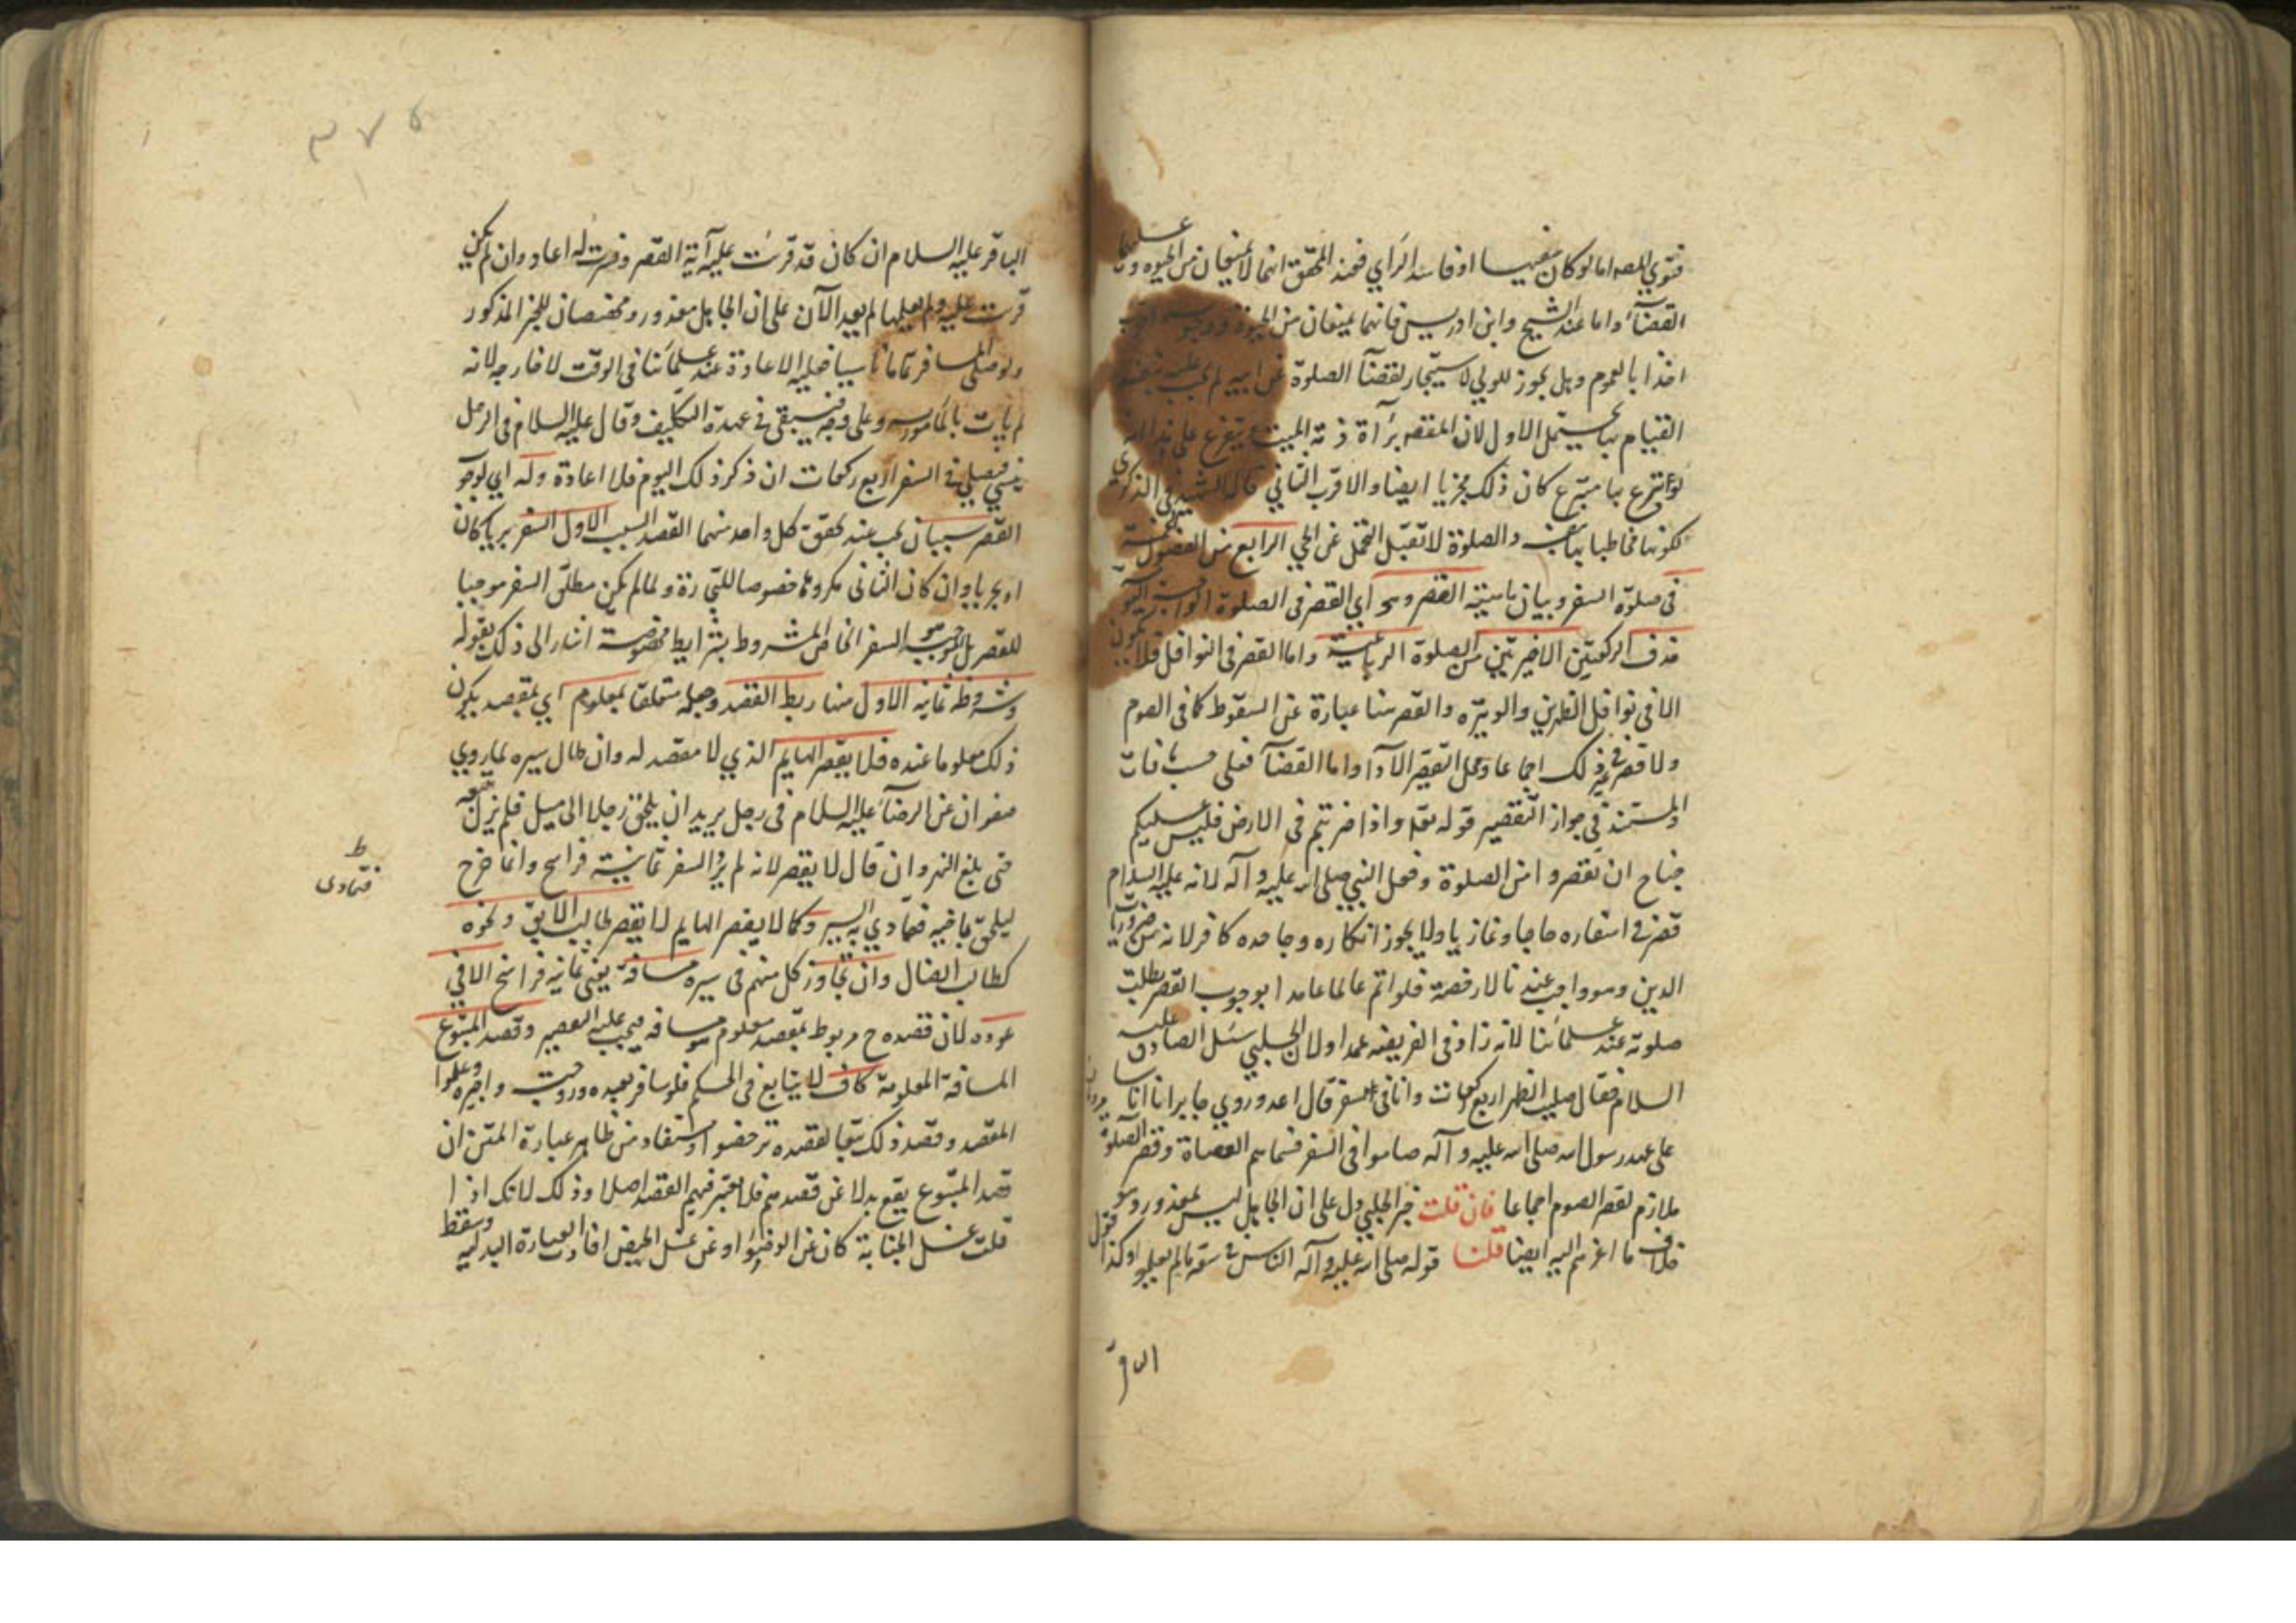 فتوي المصر اما لو كان سفيها او فاسد الراي فعند المحقق انهما لا يمنعان من الحبوه وعليهما
القضآء واما عند الشيخ وابن ادريس فانهما يمنعان من الحبوة
اخذا بالعموم وهل يجوز للولي الاستيجار لقضآء الصلوة عن ابيه لم يجب عليه بنفسه
القيام بها يحتمل الاول لان المقصد برآءة ذمة الميت ع ويتفرع على هذا انه
لو تبرع بها متبرع كان ذلك مجزيا ايضا والاقرب الثاني قاله الشهيد في الذكري
لكونها مخاطبا بها والصلوة لا تقبل التحمل عن الحي الرابع من الفصول الخمسة
في صلوة السفر وبيان ماهيته القصر وهو اي القصر في الصلوة الواجبة اليو
حذف الركعتين الاخيرتين من الصلوة الرباعية واما القصر في النوافل فلا يكون
الا في نوافل الظهرين والوتيره والقصر هنا عبارة عن السقوط كما في الصوم
ولا قصر في غير ذلك اجماعا ومحل القصر الآدا واما القضآء فعلى حسب ما فات
والمستند في جواز التقصير قوله تعا واذا ضربتم في الارض فليس عليكم
جناح ان تقصروا من الصلوة وفعل النبي صلى الله عليه وآله لانه عليه السلام
قصر في اسفاره حاجا وغازيا ولا يجوز انكاره وجاحده كافر لانه من ضروريات
الدين وهو واجب عندنا لا رخصة فلو اتم عالما عامدا بوجوب القصر بطلت
صلوته عند علمآئنا لانه زاد في الفريضه عمدا ولان الحلبي سئل الصادق عليه
السلام فقال صليت الظهر اربع ركعات وانا في السفر قال اعد وروي جابر ان اناسا
على عهد رسول الله صلى الله عليه وآله صاموا في السفر فسماهم العصاة وقصر الصلوة
ملازم لقصر الصوم اجماعا فان قلت خبر الحلبي دل على ان الجاهل ليس بمعذور وهو
خلاف ما اعزتم اليه ايضا قلنا قوله صلى الله عليه وآله الناس في سعة ما لم يعلموا وكذا قول
الباقر
٣٧٥
الباقر عليه السلام ان كان قد قرئت عليه آية القصر وفسرت له اعاد وان لم يكن
قرئت عليه ولم يعلمها لم يعد الآن على ان الجاهل معذور ومخصصان للخبر المذكور
ولو صلى المسافر تماما ناسيا فعليه الاعادة عند علمآئنا في الوقت لا خارجه لانه
لم يات بالمامور به وعلى وجهه فيبقى في عهدة التكليف وقال عليه السلام في الرجل
ينسي فيصلي في السفر اربع ركعات ان ذكر ذلك اليوم فلا اعادة وله اي لوجو
القصر سببان يجب عند تحقق كل واحد منهما القصد السبب الاول السفر بريا كان
او بحريا وان كان الثاني مكروها خصوصا للتجارة ولما لم يكن مطلق السفر موجبا
للقصر بل الموجب هو السفر الخاص المشروط بشرايط مخصوصة اشار الى ذلك بقوله
وشروطه ثمانيه الاول منها ربط القصد وجعله متعلقا بمعلوم اي بمقصد يكون
ذلك معلوما عنده فلا يقصر الهايم الذي لا مقصد له وان طال سيره لما روي
صفوان عن الرضآء عليه السلام في رجل يريد ان يلحق رجلا الى ميل فلم يزل يتبعه
حتى بلغ النهروان قال لا يقصر لانه لم يرد السفر ثمانية فراسخ وانما خرج
ليلحق صاحبه فتمادي به السير وكما لا يقصر الهايم لا يقصر طالب الآبق ونحوه
كطالب الضال وان تجاوز كل منهم في سيره مسافة يعني ثمانيه فراسخ الا في
عوده لان قصده ح مربوط بمقصد معلوم هو مسافه فيجب عليه القصر وقصد المتبوع
المسافة المعلومة كاف لا يتابع في الحكم فلو سافر بعبده وزوجته واجيره وعلموا
المقصد وقصد ذلك تبعا لقصده ترخصوا ويستفاد من ظاهر عبارة المتن ان
قصد المتبوع يقع بدلا عن قصدهم فلا يعتبر فيهم القصد اصلا وذلك لانك اذا
قلت غسل الجنابة كاف عن الوضوء او عن غسل الحيض افادت العبارة البدلية وسقط
فتمادى ظ